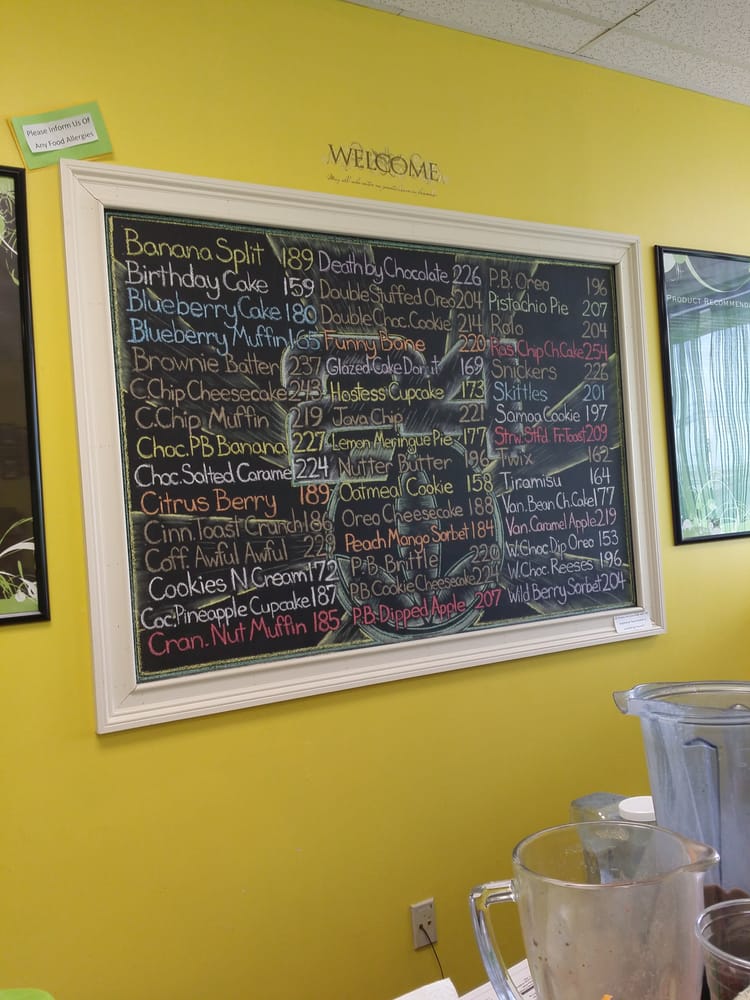 Please Inform Us Of
Any Food Allergies
WELCOME
Banana Split 189
Birthday Cake 159
Blueberry Cake 180
Blueberry Muffin 165
Brownie Batter 237
C.Chip Cheesecake 243
C.Chip. Muffin 219
Choc.PB Banana 227
Choc.Salted Caramel 224
Citrus Berry 189
Cinn.Toast Crunch 186
Coff. Awful Awful
Cookies N Cream 172
Coc.Pineapple Cupcake 187
Cran. Nut Muffin 185
Death by Chocolate 226
Double Stuffed Oreo 204
Double Choc.Cookie 244
Funny Bone 220
Glazed Cake Donut 169
Hostess Cupcake 173
Java Chip 221
Lemon Meringue Pie 177
Nutter Butter 196
Oatmeal Cookie 158
Oreo Cheesecake 188
Peach Mango Sorbet 184
P.B. Brittle 220
P.B Cookie Cheesecake
P.B. Dipped Apple 207
P.B. Oreo 196
Pistachio Pie 207
Rolo 204
Ras.Chip Ch.Cake 254
Snickers 226
Skittles 201
Samoa Cookie 197
Strw.Stfd. Fr.Toast 209
Twix 162
Tiramisu 164
Van. Bean Ch.Cake 177
Van.Caramel Apple 219
W.Choc Dip Oreo 153
W.Choc. Reeses 196
Wild Berry Sorbet 204